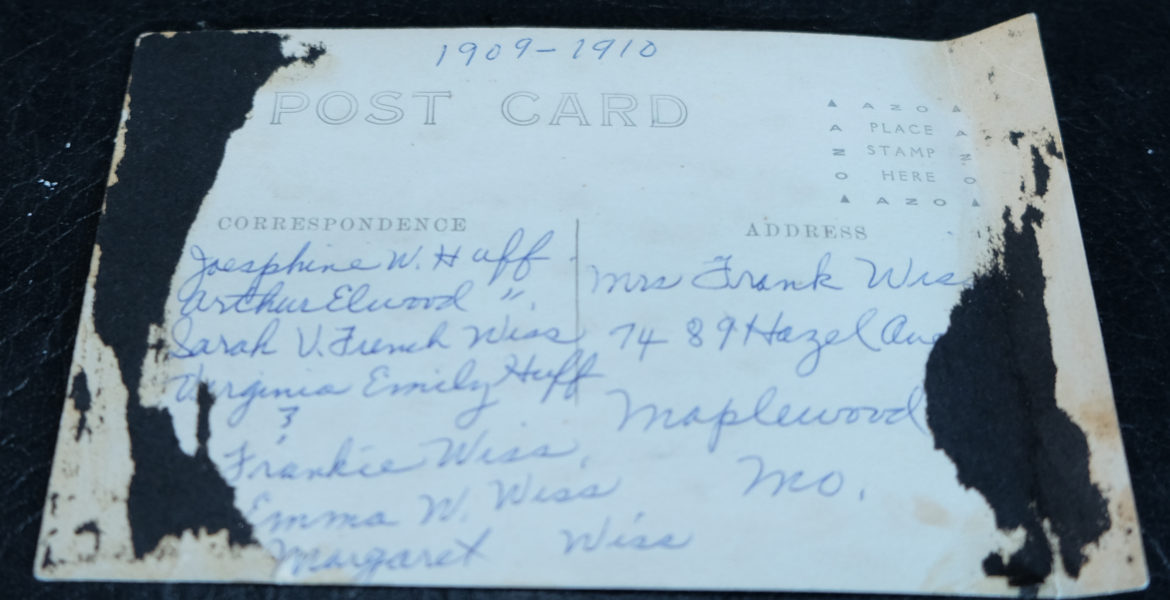 1909-1910
POST CARD
▲ AZO ▲
A PLACE A
N STAMP N
O HERE O
▲ AZO ▲
CORRESPONDENCE
Joesphine W. Huff
Arthur Elwood ".
Sarah V. French Wiss
Virginia Emily Huff
?
Frankie Wiss,
Emma W. Wiss
Margaret Wiss
ADDRESS
Mrs Frank Wis
7489 Hazel Ave
Maplewood
Mo.